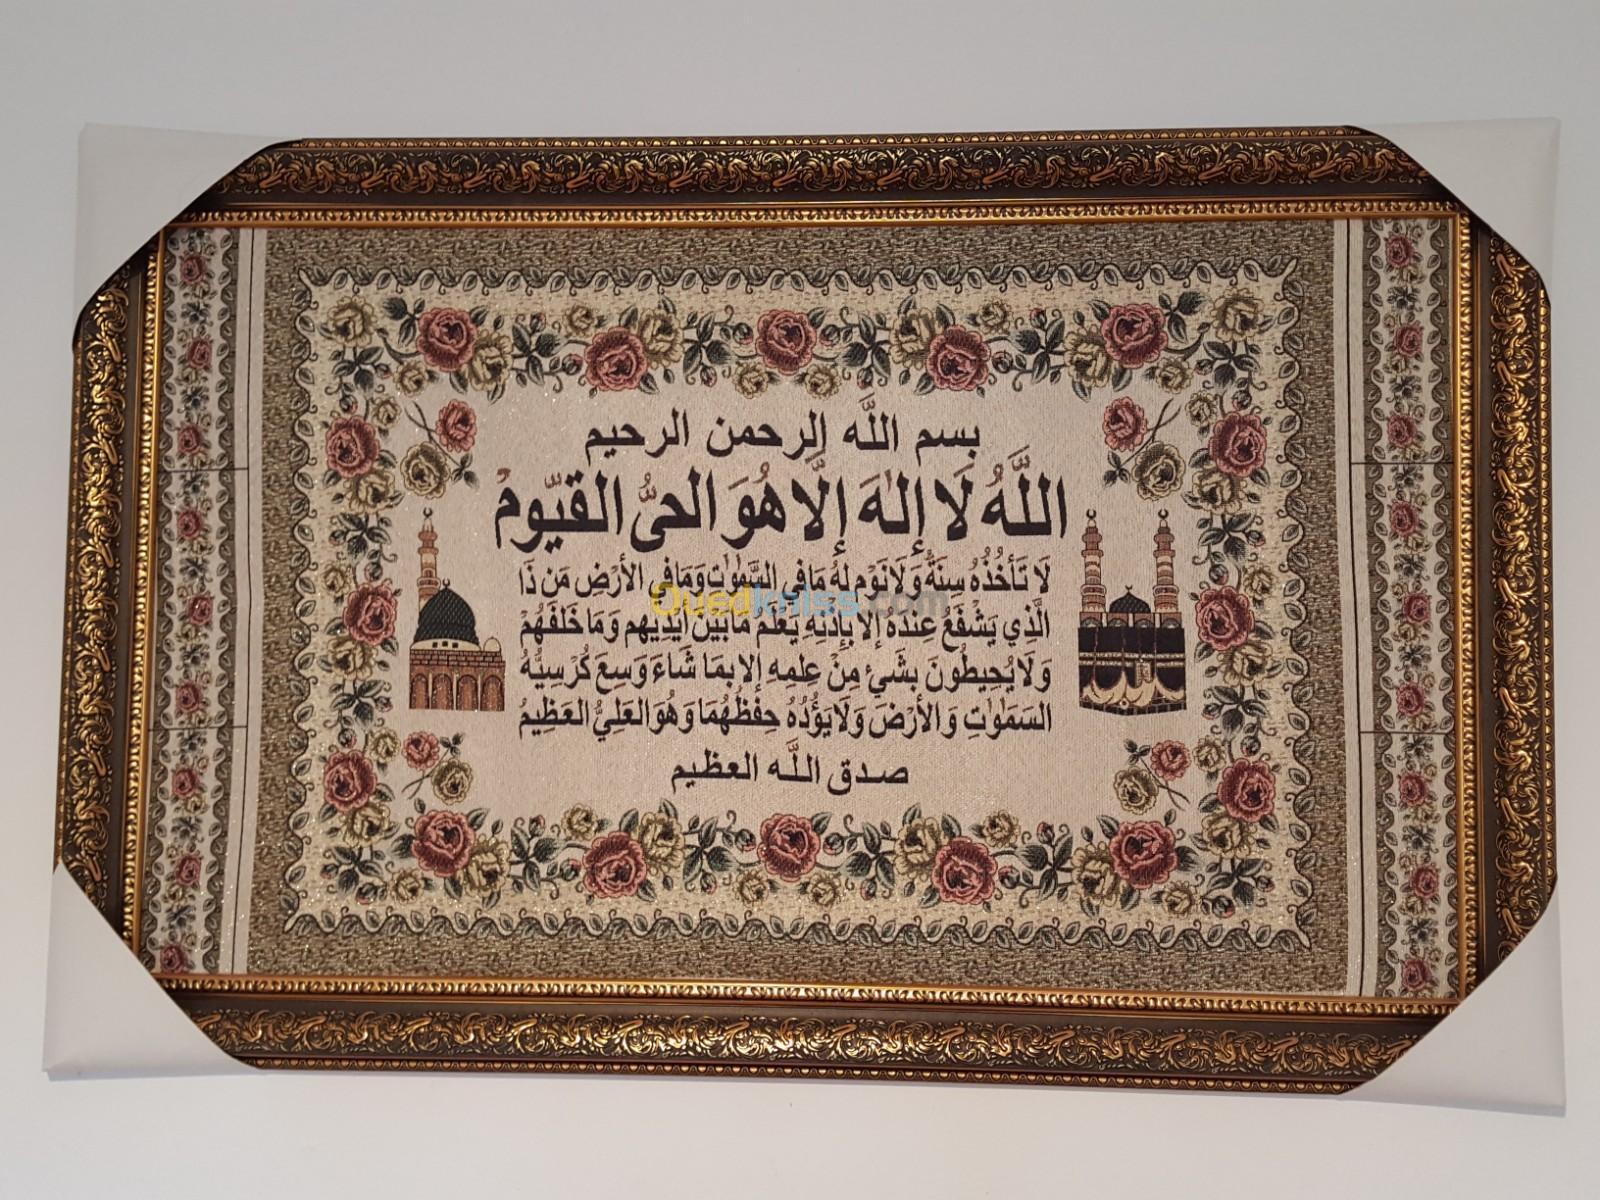 بسم الله الرحمن الرحيم
اللَّهُ لَا إِلٰهَ إِلَّا هُوَ الحىُّ القيّومُ
لَا تَأخُذُهُ سِنَةٌ وَلَا نَوْم لَهُ مَا فِي السَّمٰوٰتِ وَمَا فِي الأَرْضِ مَن ذَا
الَّذِي يَشْفَعُ عِندَهُ إلا بِإِذْنِهِ يَعْلَمُ مَا بَيْنَ أَيْدِيهِم وَمَا خَلْفَهُمْ
وَلَا يُحِيطُونَ بِشَيْءٍ مِنْ عِلمِهِ إلا بِمَا شَاءَ وَسِعَ كُرْسِيُّهُ
السَمَوٰتِ وَالأَرْضَ وَلَا يَؤُدُهُ حِفظُهُمَا وَهُوَ العَلِيُّ العَظِيمُ
صدق الله العظيم
Ouedkniss.com